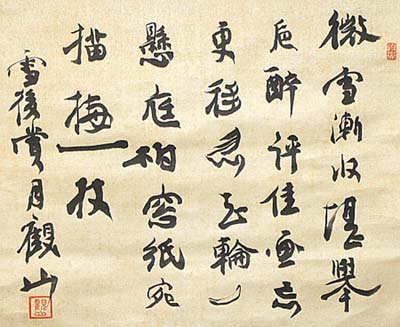 微雪漸收堪舉
卮醉評佳画忘
更忽輪
懸庭窓紙宛
描梅一枝
雪後賞月觀山